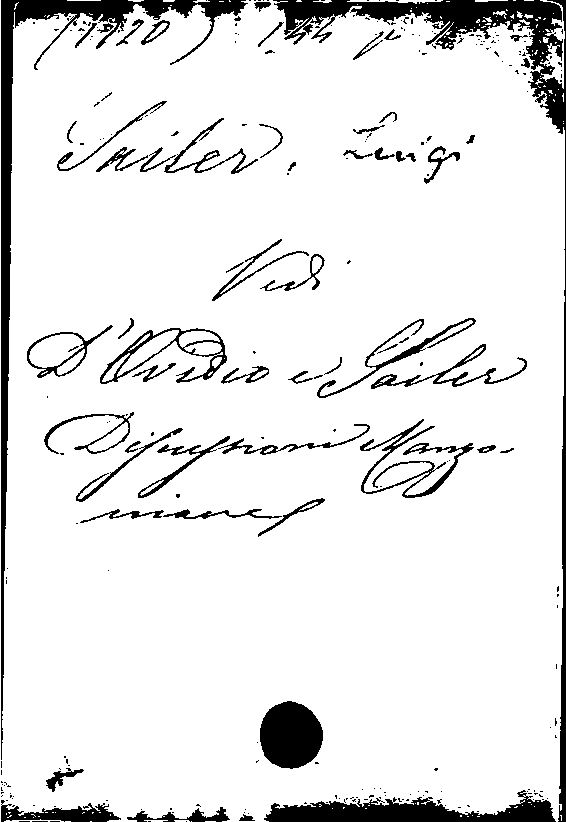 (1120) 144
Sailer, Luigi
Vedi
D'Ovidio e Sailer
Discussioni Manzo-
niane